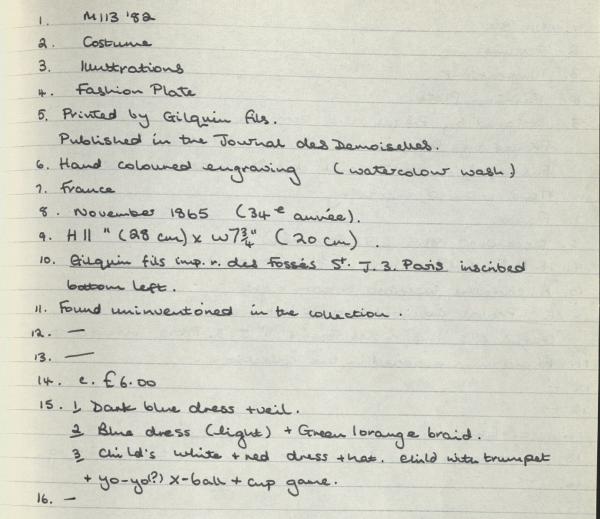 1. M113 '82
2. Costume
3. Illustrations
4. Fashion Plate
5. Printed by Gilquin fils.
Published in the Journal des Demoiselles.
6. Hand coloured engraving (watercolour wash)
7. France
8. November 1865 (34e année).
9. H 11" (28 cm) x W 7 3/4" (20 cm).
10. Gilquin fils imp. r. des Fossés St. J. 3. Paris inscribed
bottom left.
11. Found uninventoried in the collection.
12. —
13. —
14. c. £6.00
15. 1 Dark blue dress + veil.
2 Blue dress (light) + Green / orange braid.
3 Child's white + red dress + hat. Child with trumpet
+ yo-yo(?) x-ball + cup game.
16. —